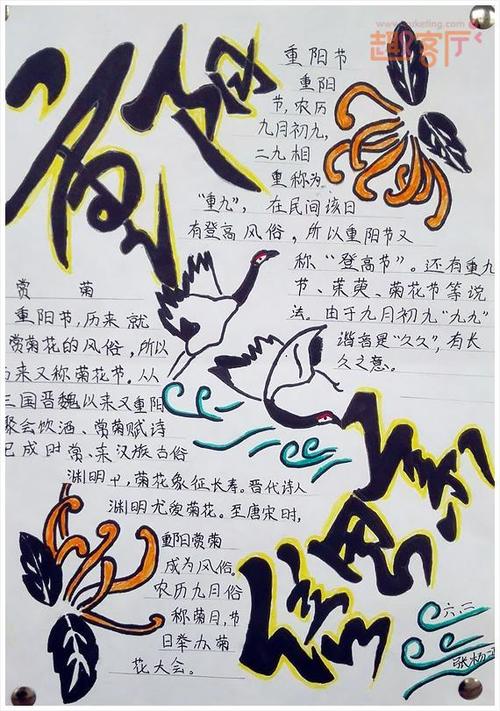 重阳
www.       rketing.com
趣客厅
重阳节
重阳
节,农历
九月初九,
二九相
重称为
“重九”, 在民间该日
有登高风俗,所以重阳节又
称“登高节”。还有重九
节、茱萸、菊花节等说
法。由于九月初九“九九”
谐音是“久久”,有长
久之意。
赏菊
重阳节,历来就
赏菊花的风俗,所以
来又称菊花节。从
三国晋魏以来又重阳
聚会饮酒、赏菊赋诗
已成时赏、来汉族古俗
渊明 , 菊花象征长寿。晋代诗人
渊明尤爱菊花。至唐宋时,
重阳赏菊
成为风俗。
农历九月俗
称菊月,节
日举办菊
花大会。
六.二
张杨